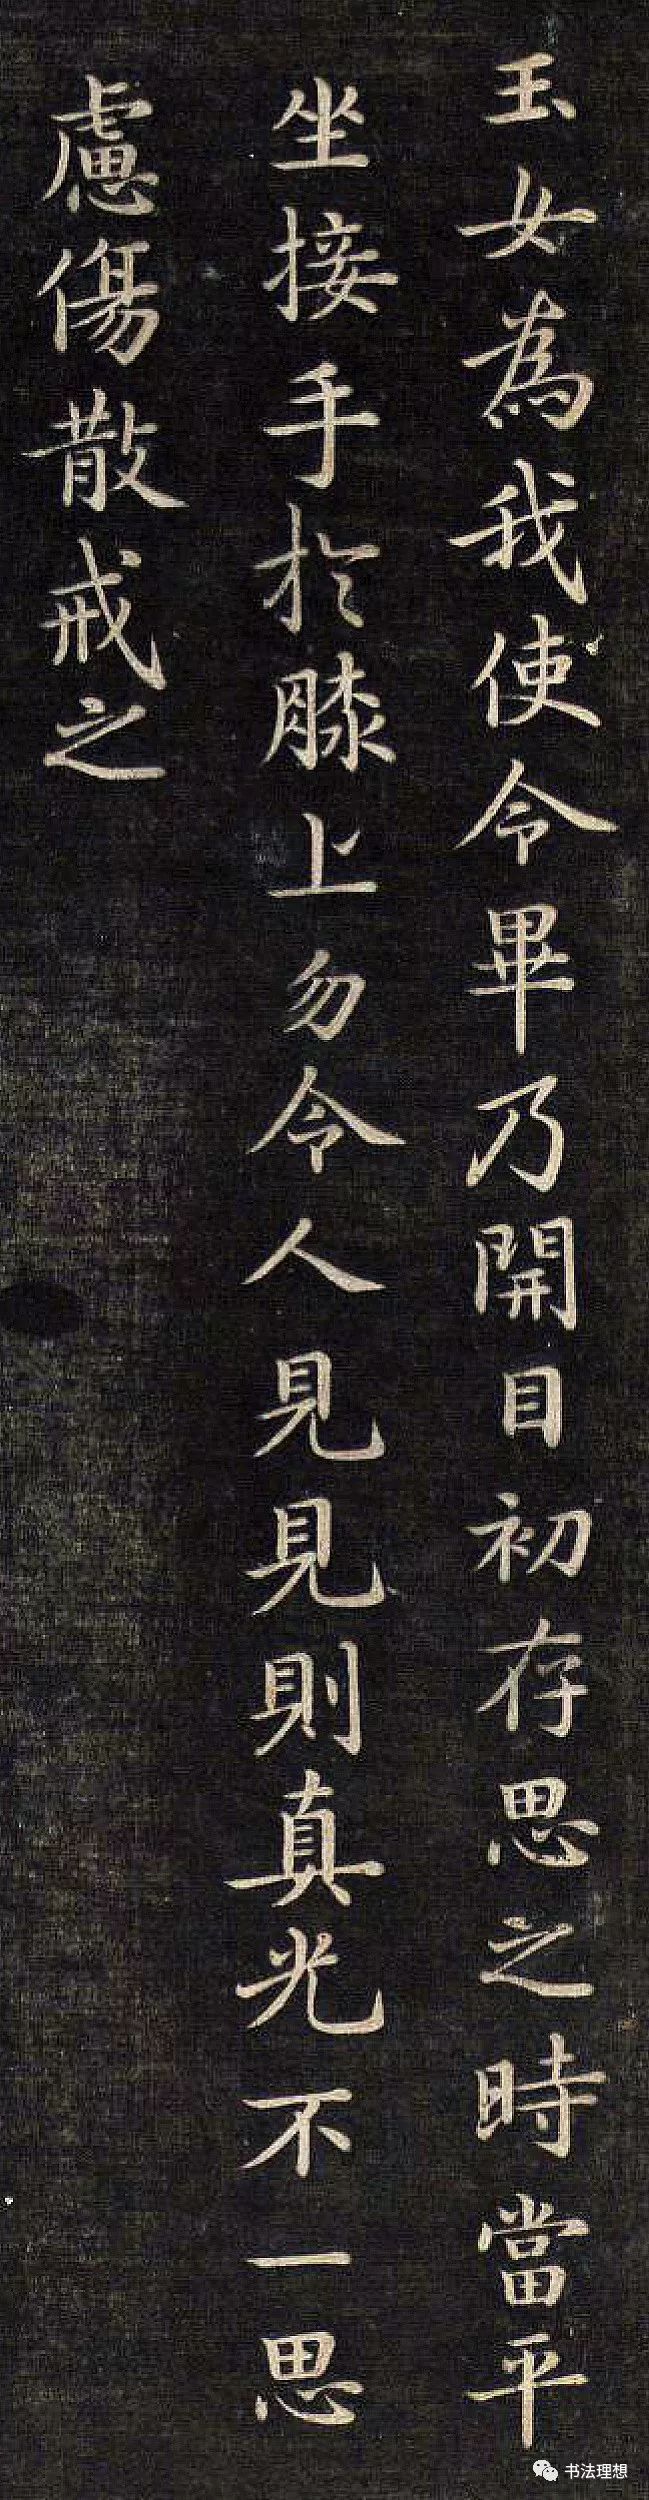 玉女為我使令畢乃開目初存思之時當平
坐接手於膝上勿令人見見則真光不一思
慮傷散戒之
书法理想